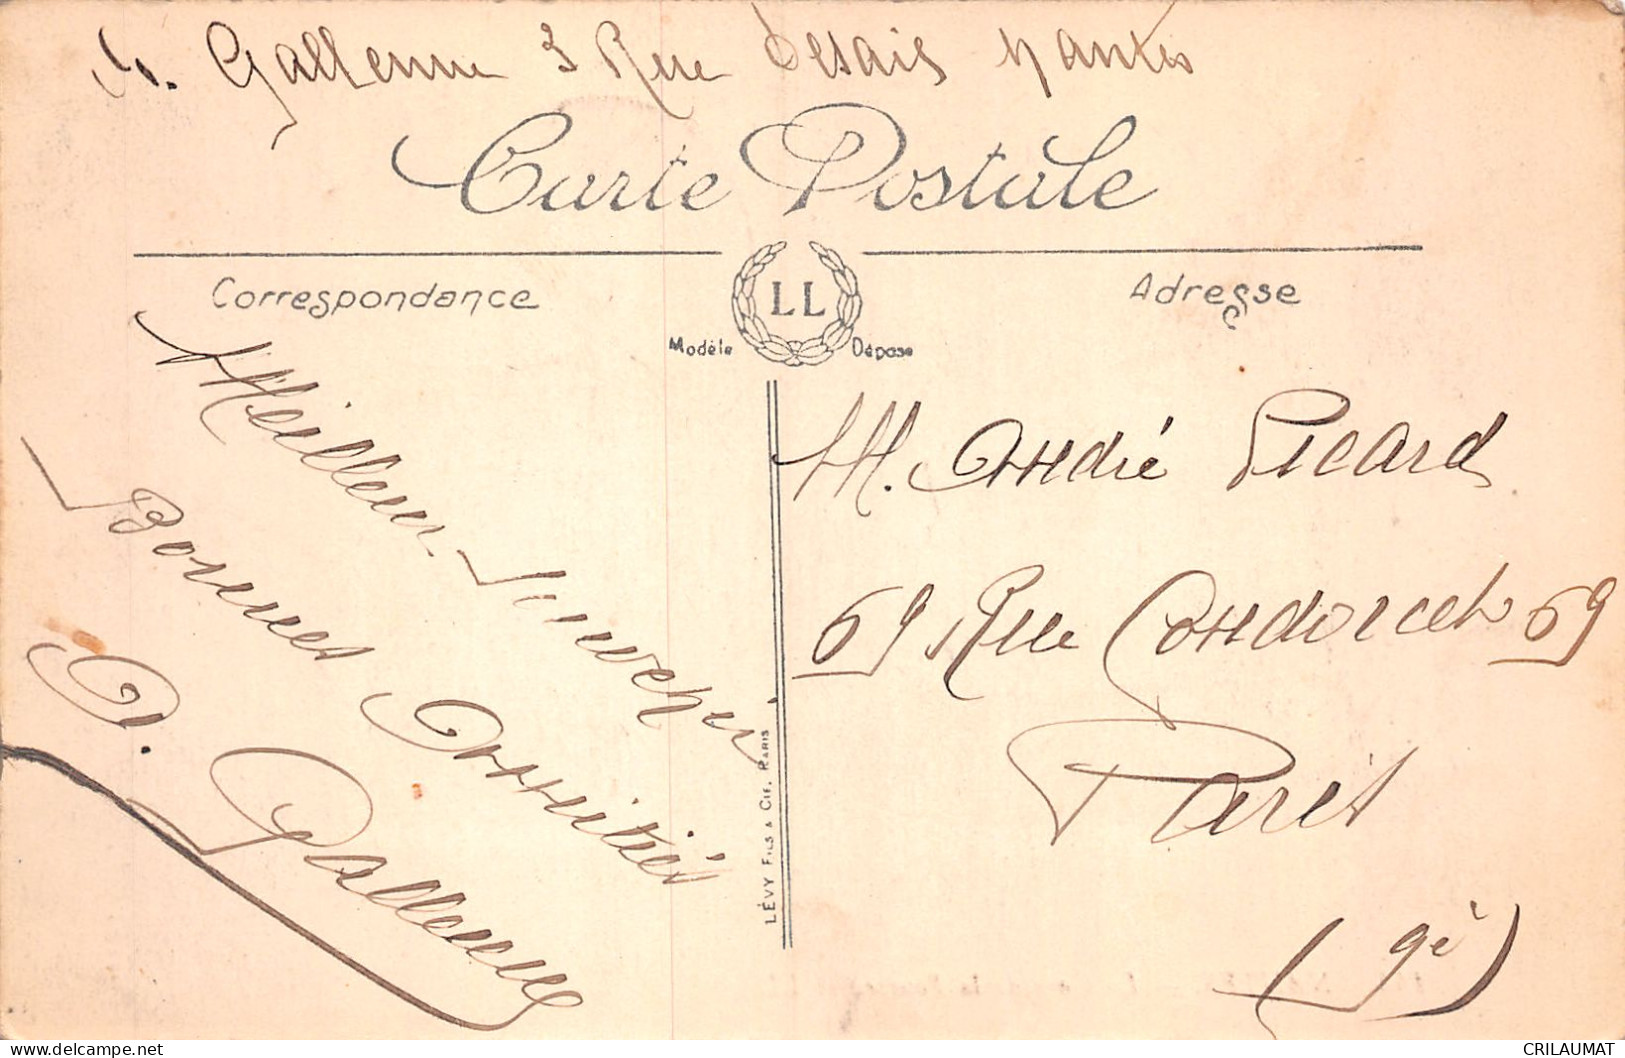 Gallenne 3 Rue Desaix Nantes
Carte Postale
Correspondance
LL
Modèle Déposé
Adresse
Meilleur Souvenir
Bonnes Amitiés
P. Gallenne
LÉVY FILS & CIE, PARIS
M. André Picard
69 Rue Condorcet 69
Paris
(9è)
CRILAUMAT